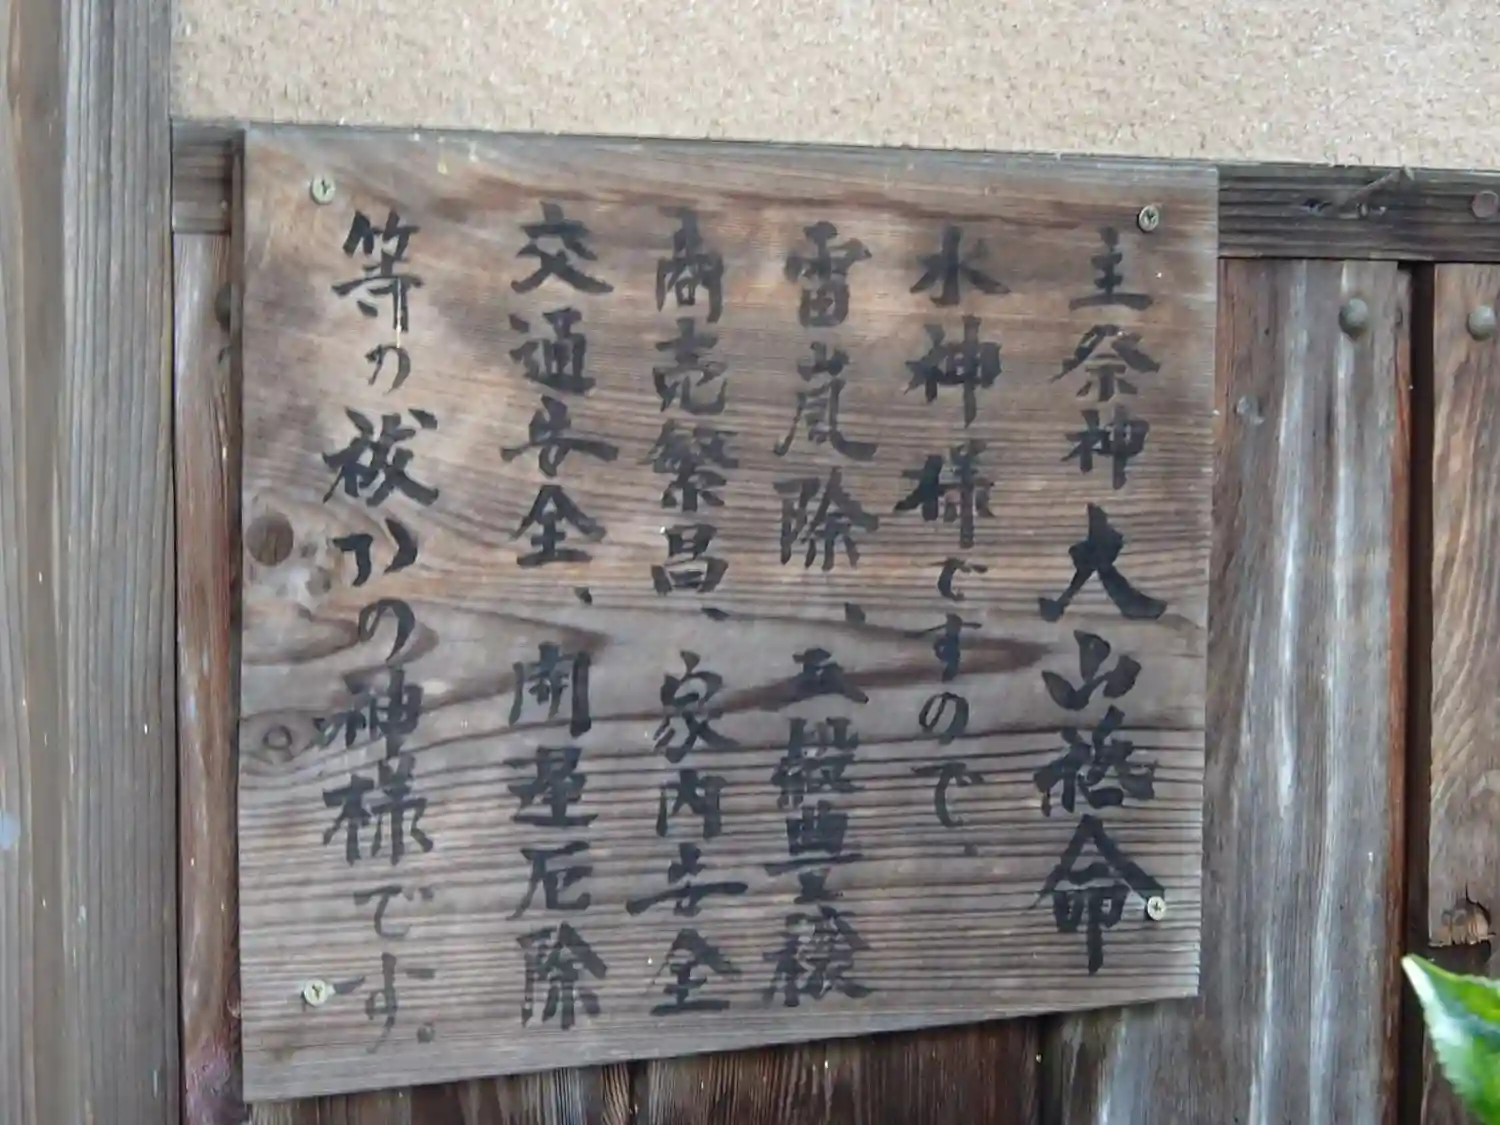 主祭神大山祇命
水神様ですので、
雷嵐除、五穀豊穣
商売繁昌、家内安全
交通安全、開運厄除
等の祓いの神様です。